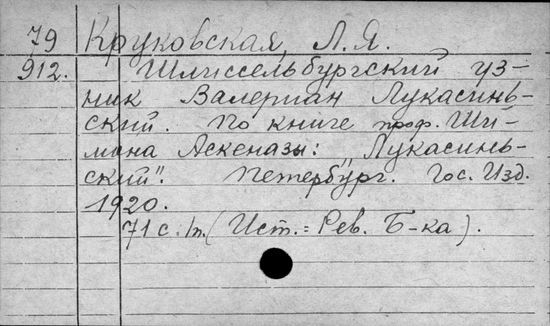 79 Круковская, Л. Я.
912. Шлиссельбургский уз-
ник Валериан Лукасинь-
ский. По книге проф. Ши-
мона Аскеназы: „Лукасинь-
ский". Петербург. Гос. Изд.
1920.
71 с. 1п. (Ист.-Рев. Б-ка).